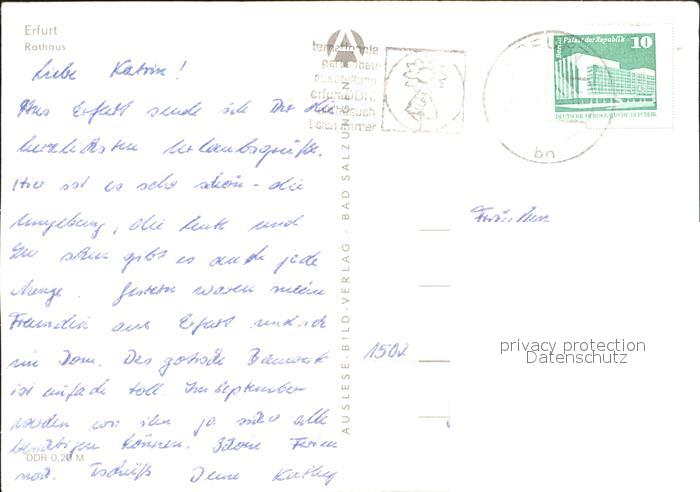 Erfurt
Rathaus
Liebe Katrin!
Aus Erfurt sende ich Dir die
herzlichsten Urlaubsgrüße.
Hier ist es sehr schön - die
Umgebung, die Leute und
zu sehen gibt es auch jede
Menge. Gestern waren meine
Freundin aus Erfurt und ich
im Dom. Das gotische Bauwerk
ist einfach toll. Im September
werden wir ihn ja sicher alle
besichtigen können. Schöne Ferien
noch. Tschüß Deine Kathy
DDR 0,20 M
AUSLESE-BILD-VERLAG · BAD SALZUNGEN
internationale
gartenbau-
ausstellung
erfurt DDR.
besuch
immer
bn
Berlin Palast der Republik 10
DEUTSCHE DEMOKRATISCHE REPUBLIK
Fräulein
1502
privacy protection
Datenschutz